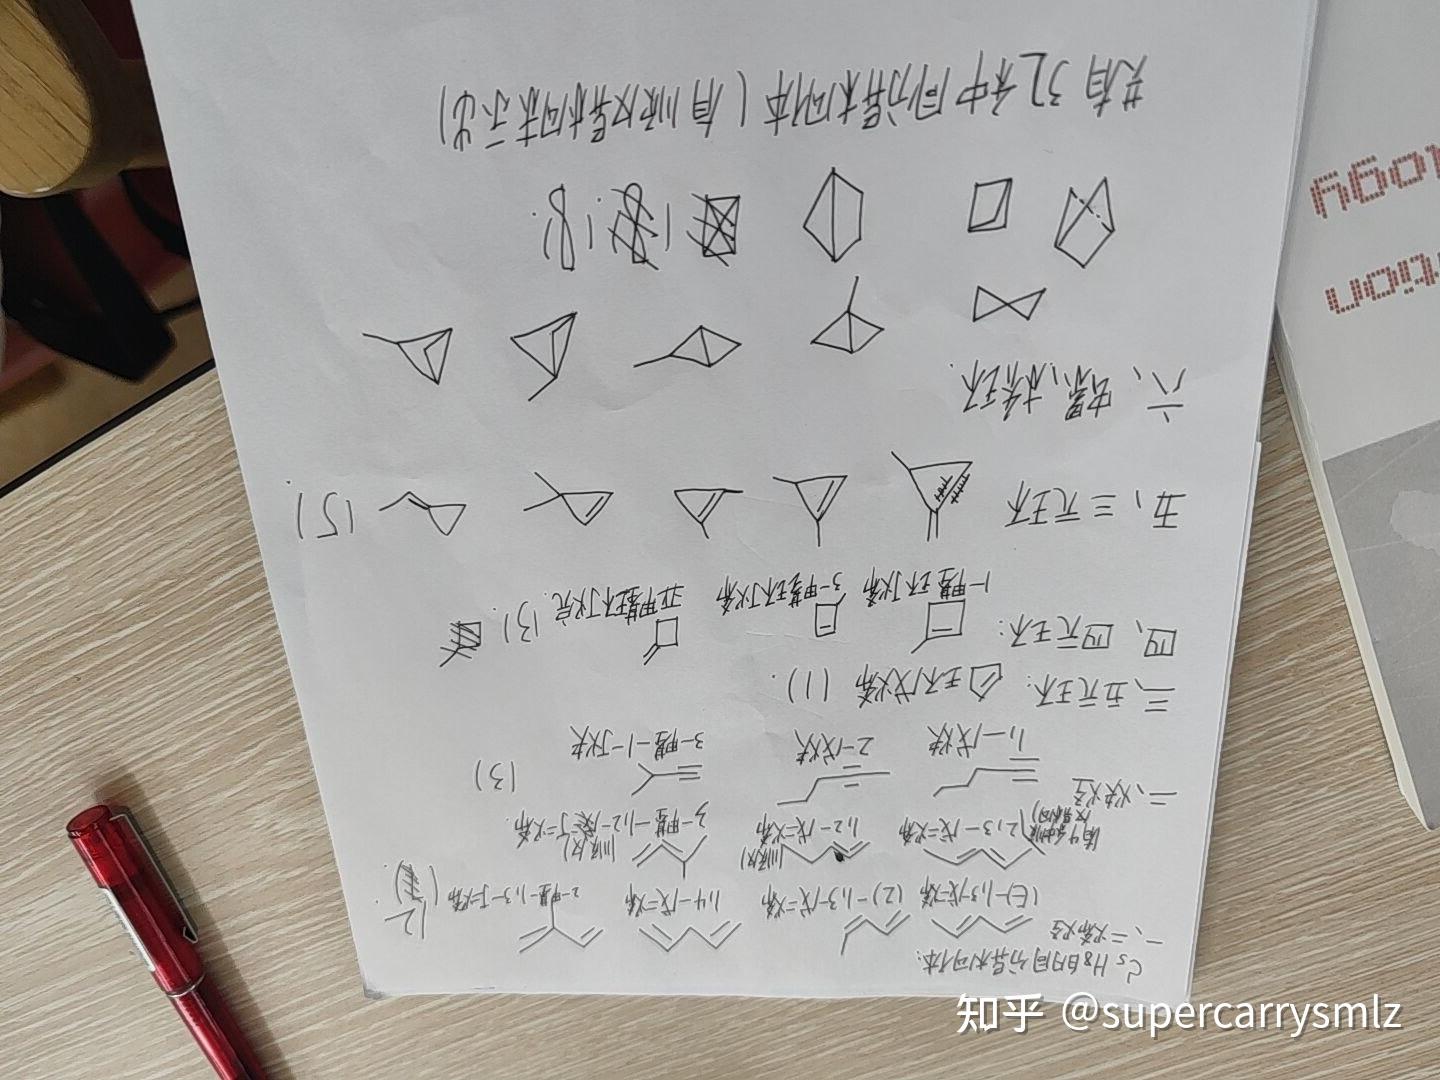 C5H8的同分异构体:
一、二烯烃
(E)-1,3-戊二烯 (Z)-1,3-戊二烯 1,4-戊二烯 2-甲基-1,3-丁二烯
12
2,3-戊二烯 1,2-戊二烯 3-甲基-1,2-丁二烯
(顺反) (顺反)
二、炔烃
1-戊炔 2-戊炔 3-甲基-1-丁炔 (3)
三、五元环: 环戊烯 (1).
四、四元环:
1-甲基环丁烯 3-甲基环丁烯 亚甲基环丁烷. (3).
五、三元环 (5).
六、螺,桥环.
(8).
共有32种同分异构体(有顺反异构表示出)
知乎 @supercarrysmlz
ology
ction